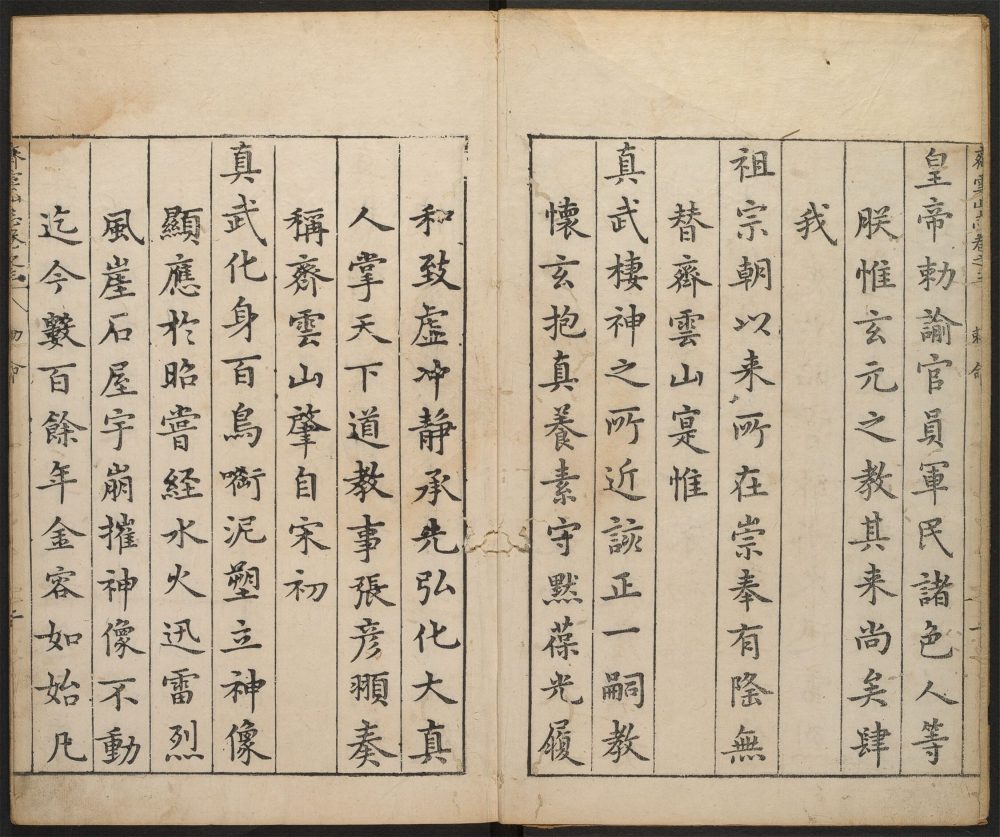 皇帝勅諭官員軍民諸色人等
朕惟玄元之教其来尚矣肆
我
祖宗朝以来所在崇奉有隆無
替齊雲山寔惟
真武棲神之所近該正一嗣教
懷玄抱真養素守默葆光履
和致虛冲静承先弘化大真
人掌天下道教事張彦頨奏
稱齊雲山肇自宋初
真武化身百鳥啣泥塑立神像
顯應於昭嘗経水火迅雷烈
風崖石屋宇崩摧神像不動
迄今數百餘年金容如始凡